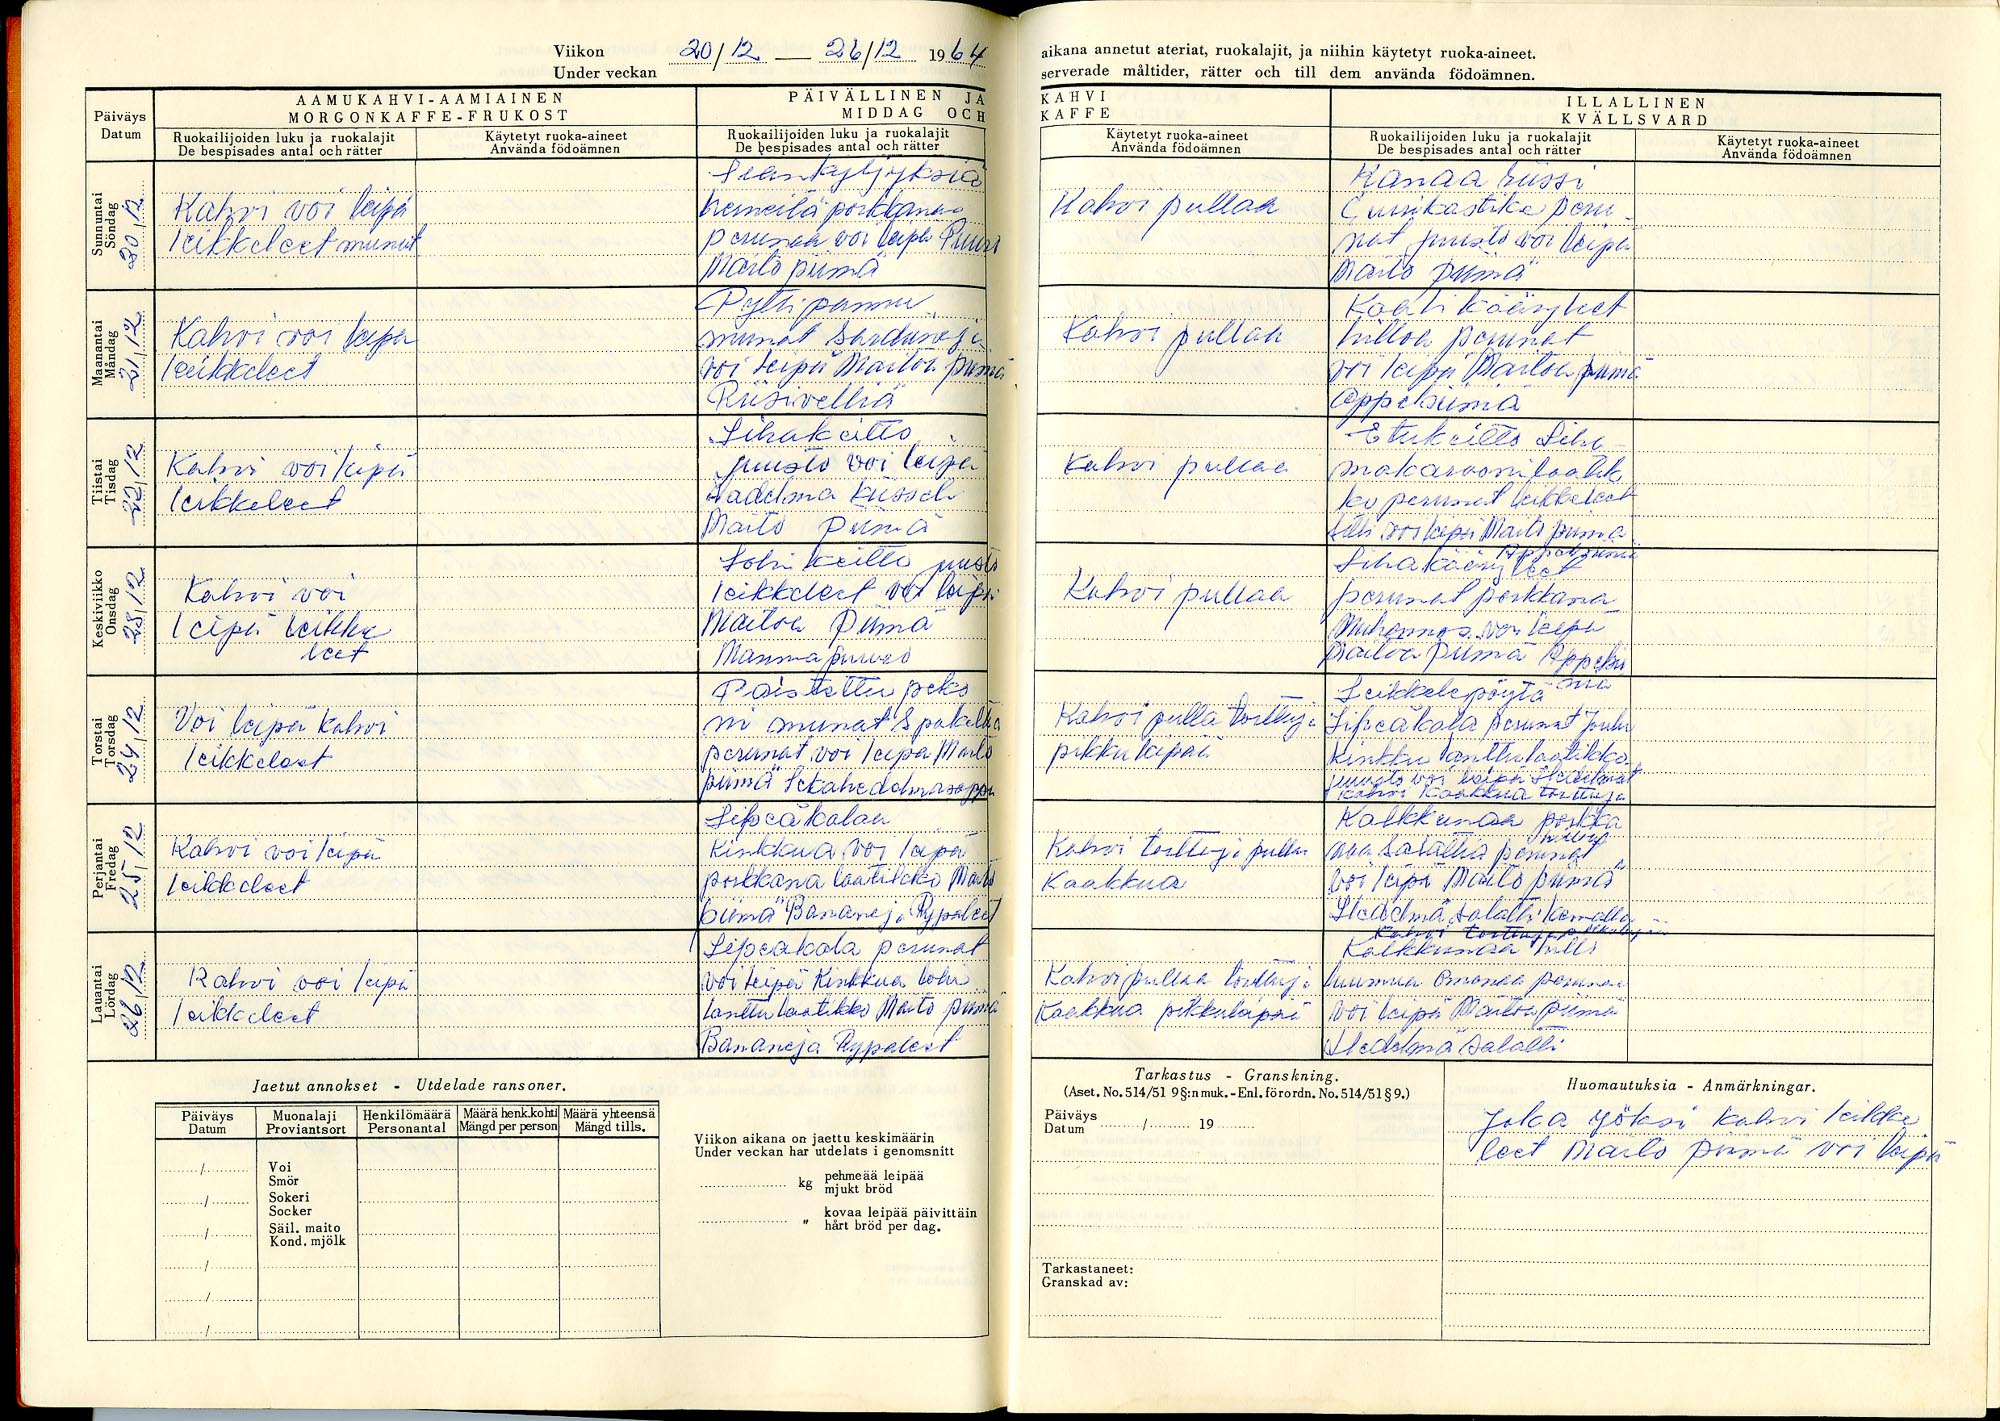 Viikon 20/12 — 26/12 1964
Under veckan
aikana annetut ateriat, ruokalajit, ja niihin käytetyt ruoka-aineet.
serverade måltider, rätter och till dem använda födoämnen.
Päiväys
Datum
AAMUKAHVI-AAMIAINEN
MORGONKAFFE-FRUKOST
PÄIVÄLLINEN JA
MIDDAG OCH
KAHVI
KAFFE
ILLALLINEN
KVÄLLSVARD
Ruokailijoiden luku ja ruokalajit
De bespisades antal och rätter
Käytetyt ruoka-aineet
Använda födoämnen
Ruokailijoiden luku ja ruokalajit
De bespisades antal och rätter
Käytetyt ruoka-aineet
Använda födoämnen
Ruokailijoiden luku ja ruokalajit
De bespisades antal och rätter
Käytetyt ruoka-aineet
Använda födoämnen
Sunnuntai
Söndag
20/12
Kahvi voi leipä
leikkeleet munat
Siankyljyksiä
herneitä porkkanaa
perunaa voi leipä
Maito piimä
Kahvi pullaa
Kanaa riissi
peru-
nat juusto voi leipä
Maito piimä
Maanantai
Måndag
21/12
Kahvi voi leipä
leikkeleet
Pytti pannu
munat Sardineja
voi leipä Maitoa piimä
Riisivelliä
Kahvi pullaa
Kaali kääryleet
hilloa perunat
voi leipä Maitoa piimä
Appelsiinia
Tiistai
Tisdag
22/12
Kahvi voi leipä
leikkeleet
Lihakeitto
juusto voi leipä
Hadelma kiisseli
Maito Piimä
Kahvi pullaa
Etukeitto Liha-
makaroonilaatik
ko perunat leikkeleet
silli voi leipä Maito piimä
Appelsiinia
Keskiviikko
Onsdag
23/12
Kahvi voi
leipä leikke
leet
Lohi keitto juusto
leikkeleet voi leipä
Maitoa Piimä
Manna puuro
Kahvi pullaa
Lihakääryleet
perunat porkkana
Muhennos voi leipä
Maitoa piimä Appelsii
nia
Torstai
Torsdag
24/12
Voi leipä kahvi
leikkeleet
Paistettu peko
ni munat Spakettia
perunat voi leipä Maito
piimä Sekahedelmäsoppa
Kahvi pulla torttuja
pikkuleipiä
Leikkelepöytä
Lipeäkala perunat Joulu
Kinkku lanttulaatikko
juusto voi leipä Hedelmät
kahvi Kaakkua torttuja
Perjantai
Fredag
25/12
Kahvi voi leipä
leikkeleet
Lipeäkalaa
Kinkkua voi leipä
porkkana laatikko Maito
piimä Bananeja Rypäleet
Kahvi torttuja pulla
Kaakkua
Kalkkunaa porkka
naa salattia perunat
voi leipä Maito piimä
Hedelmä salatti
Kahvi torttuja
Lauantai
Lördag
26/12
Kahvi voi leipä
leikkeleet
Lipeäkala perunat
voi leipä Kinkkua Lohi
lanttu laatikko Maito piimä
Bananeja Rypäleet
Kahvi pullaa torttuja
Kaakkua pikkuleipiä
Kalkkunaa hillo
luumua Omenaa perunaa
voi leipä Maitoa piimä
Hedelmä salatti
Jaetut annokset - Utdelade ransoner.
Päiväys
Datum
Muonalaji
Proviantsort
Henkilömäärä
Personantal
Määrä henk.kohti
Mängd per person
Määrä yhteensä
Mängd tills.
Voi
Smör
Sokeri
Socker
Säil. maito
Kond. mjölk
Viikon aikana on jaettu keskimäärin
Under veckan har utdelats i genomsnitt
kg pehmeää leipää
mjukt bröd
" kovaa leipää päivittäin
hårt bröd per dag.
Tarkastus - Granskning.
(Aset. No. 514/51 9§:n muk. - Enl. förordn. No. 514/51 § 9.)
Päiväys
Datum / 19
Tarkastaneet:
Granskad av:
Huomautuksia - Anmärkningar.
Joka yöksi Kahvi leikke
leet Maito piimä voi leipä